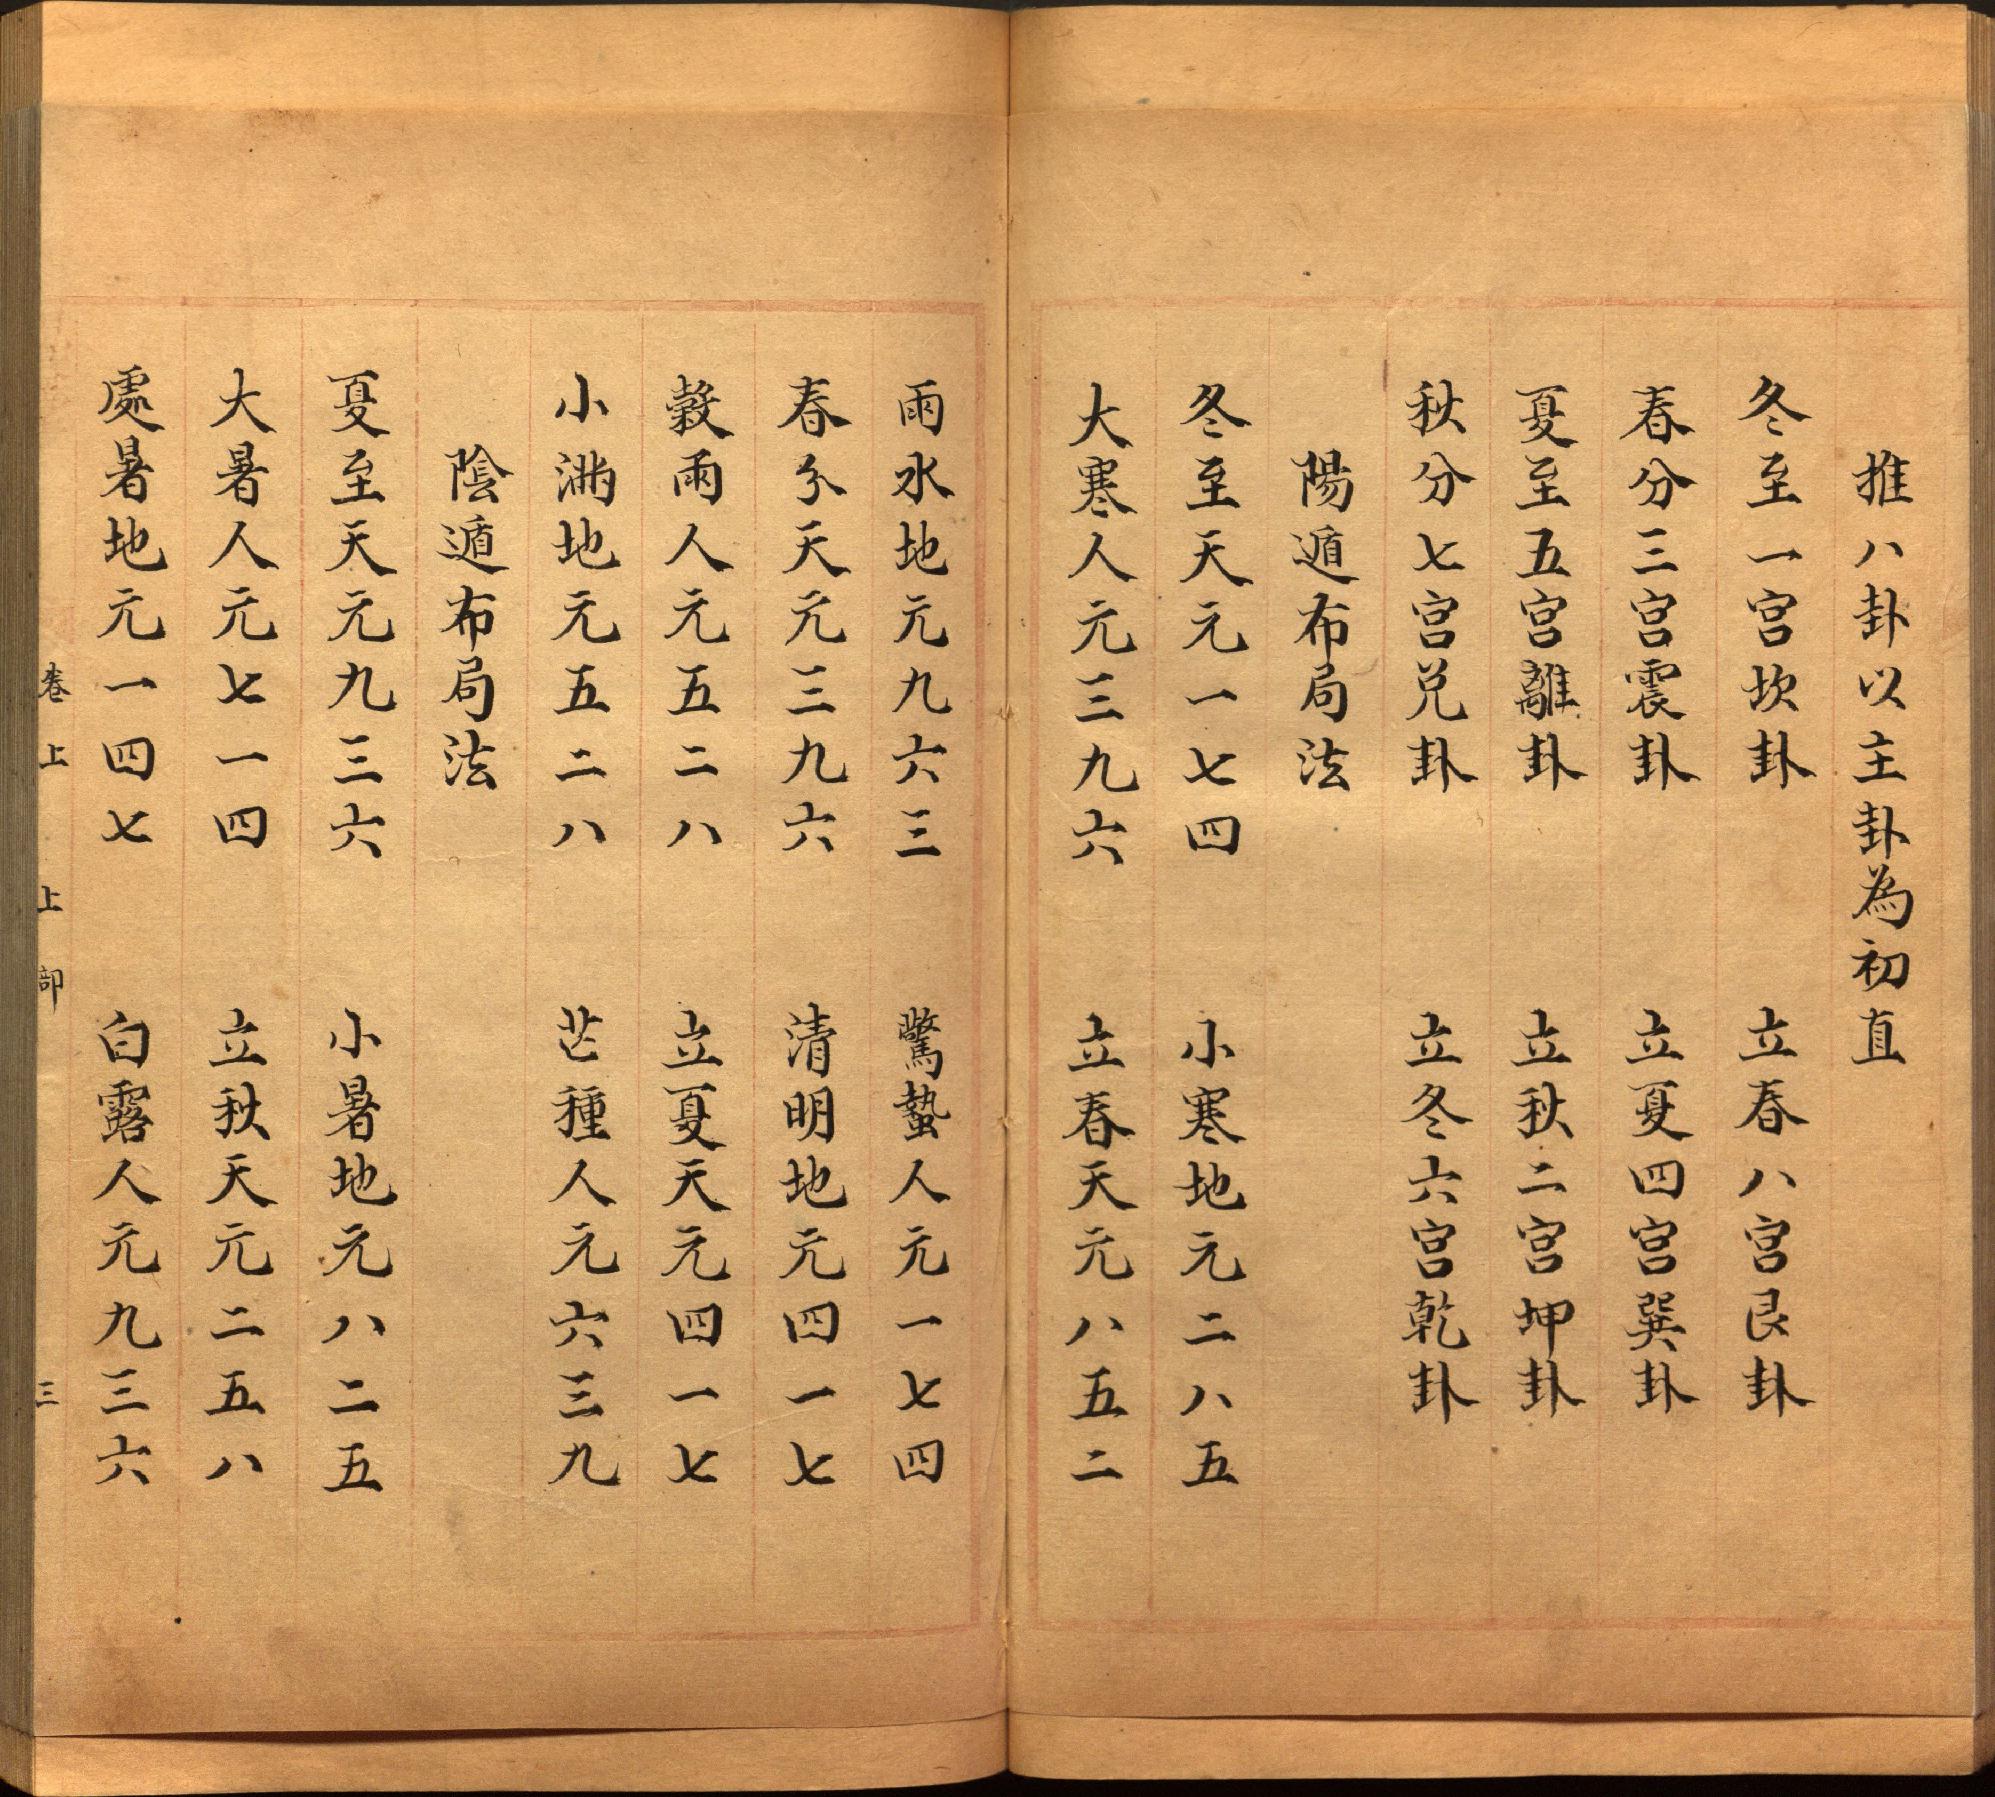 推八卦以主卦為初直
冬至一宮坎卦　立春八宮艮卦
春分三宮震卦　立夏四宮巽卦
夏至五宮離卦　立秋二宮坤卦
秋分七宮兌卦　立冬六宮乾卦
陽遁布局法
冬至天元一七四　小寒地元二八五
大寒人元三九六　立春天元八五二
雨水地元九六三　驚蟄人元一七四
春分天元三九六　清明地元四一七
穀雨人元五二八　立夏天元四一七
小滿地元五二八　芒種人元六三九
陰遁布局法
夏至天元九三六　小暑地元八二五
大暑人元七一四　立秋天元二五八
處暑地元一四七　白露人元九三六
卷上　上部　三